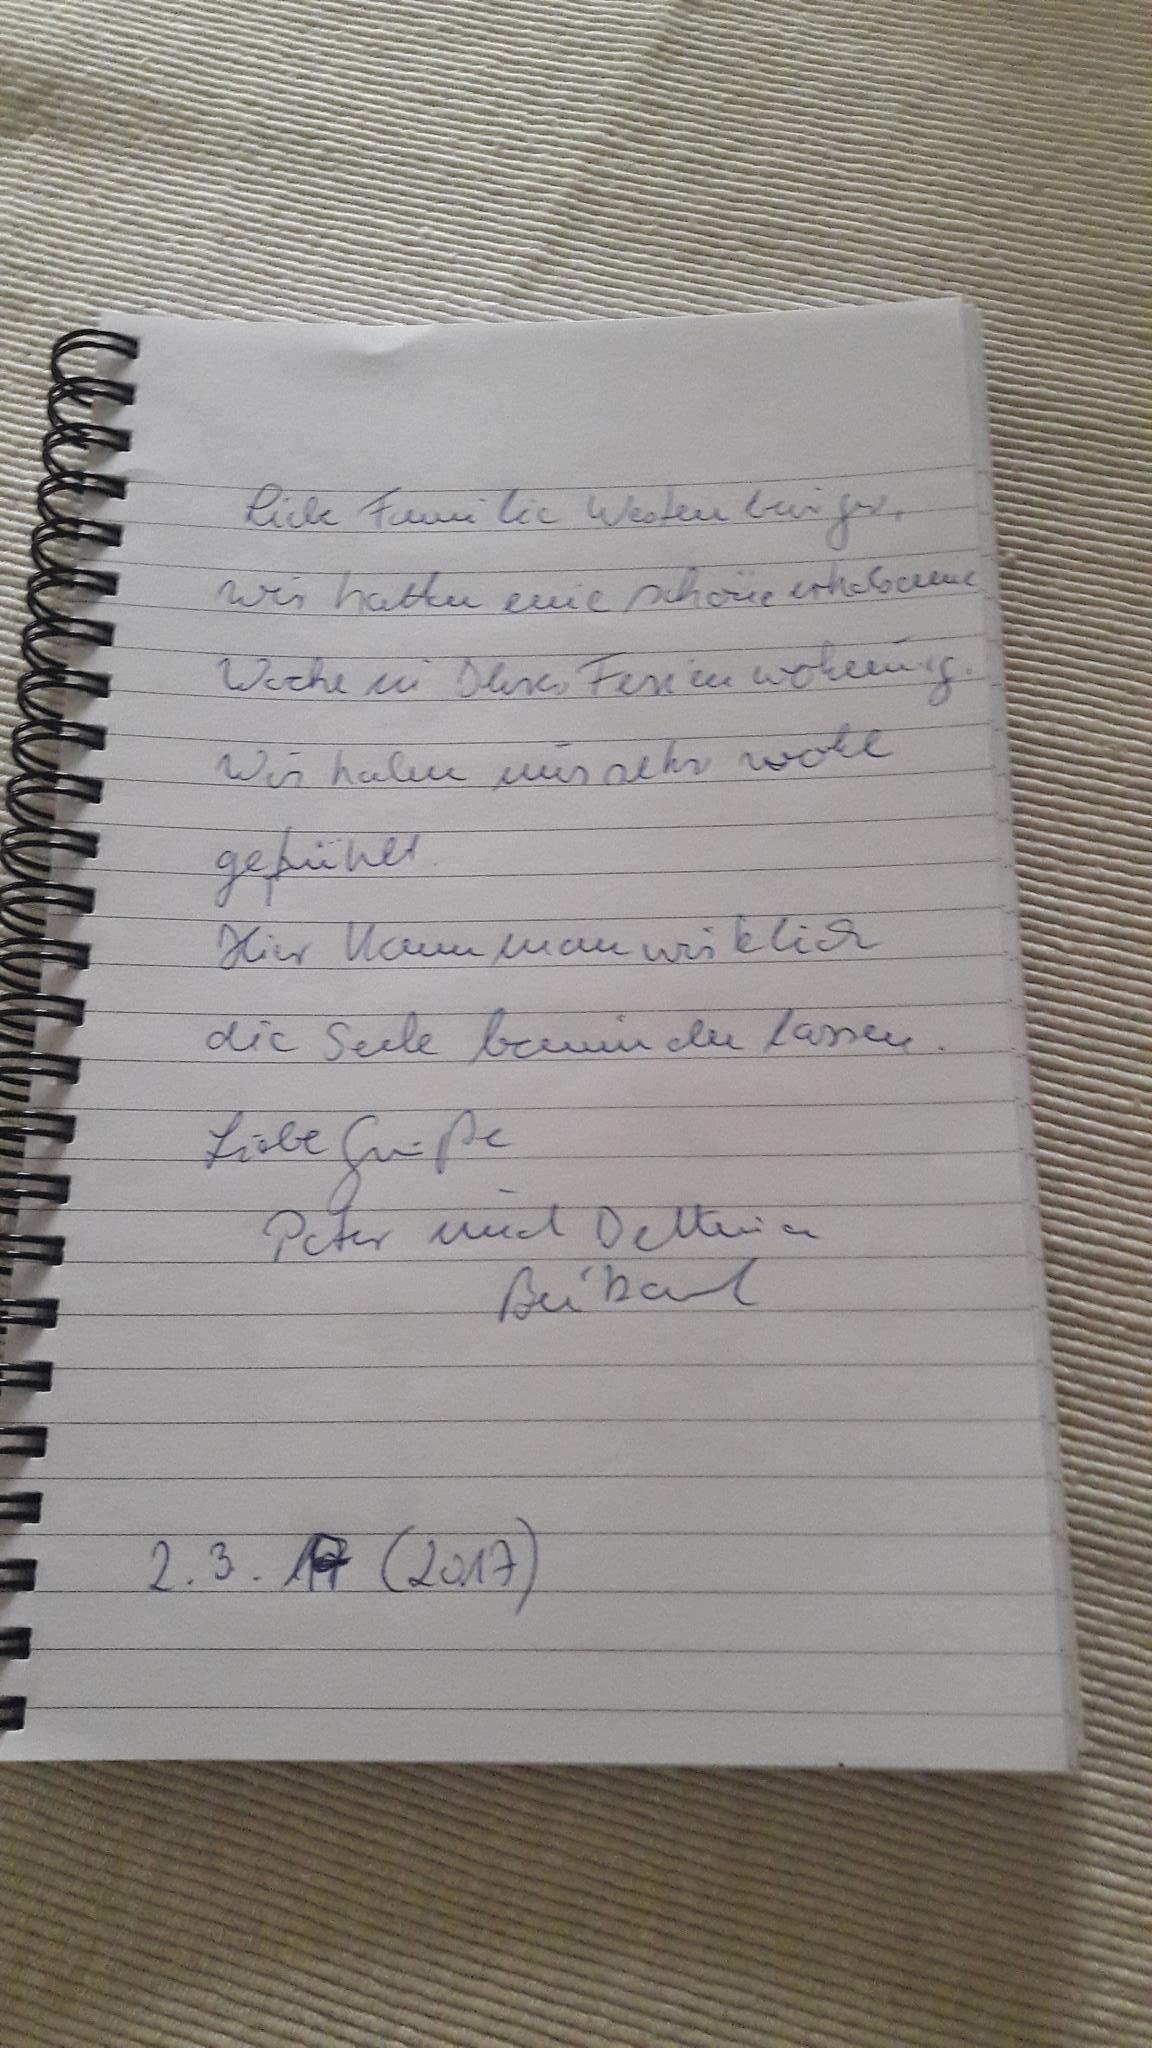 Liebe Familie Westenburger,
wir hatten eine schöne erholsame
Woche in Ihrer Ferienwohnung.
Wir haben uns sehr wohl
gefühlt.
Hier kann man wirklich
die Seele baumeln lassen.
Liebe Grüße
Peter und Bettina
2.3.17 (2017)